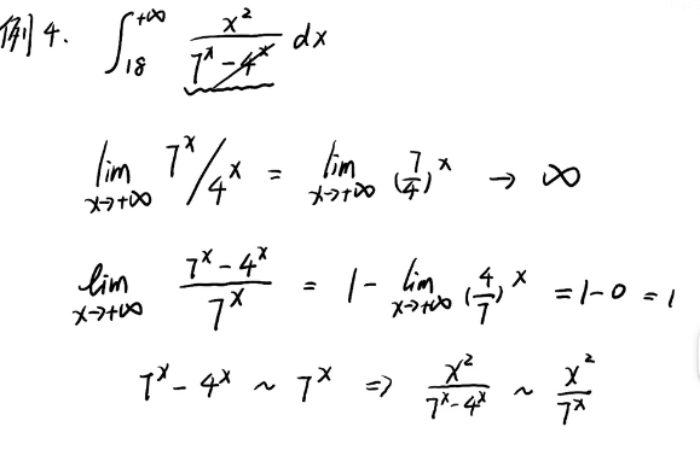 例4. ∫₁₈^{+∞} x²/(7ˣ-4ˣ) dx
lim_{x→+∞} 7ˣ/4ˣ = lim_{x→+∞} (7/4)ˣ → ∞
lim_{x→+∞} (7ˣ-4ˣ)/7ˣ = 1- lim_{x→+∞} (4/7)ˣ = 1-0 = 1
7ˣ-4ˣ ~ 7ˣ ⇒ x²/(7ˣ-4ˣ) ~ x²/7ˣ